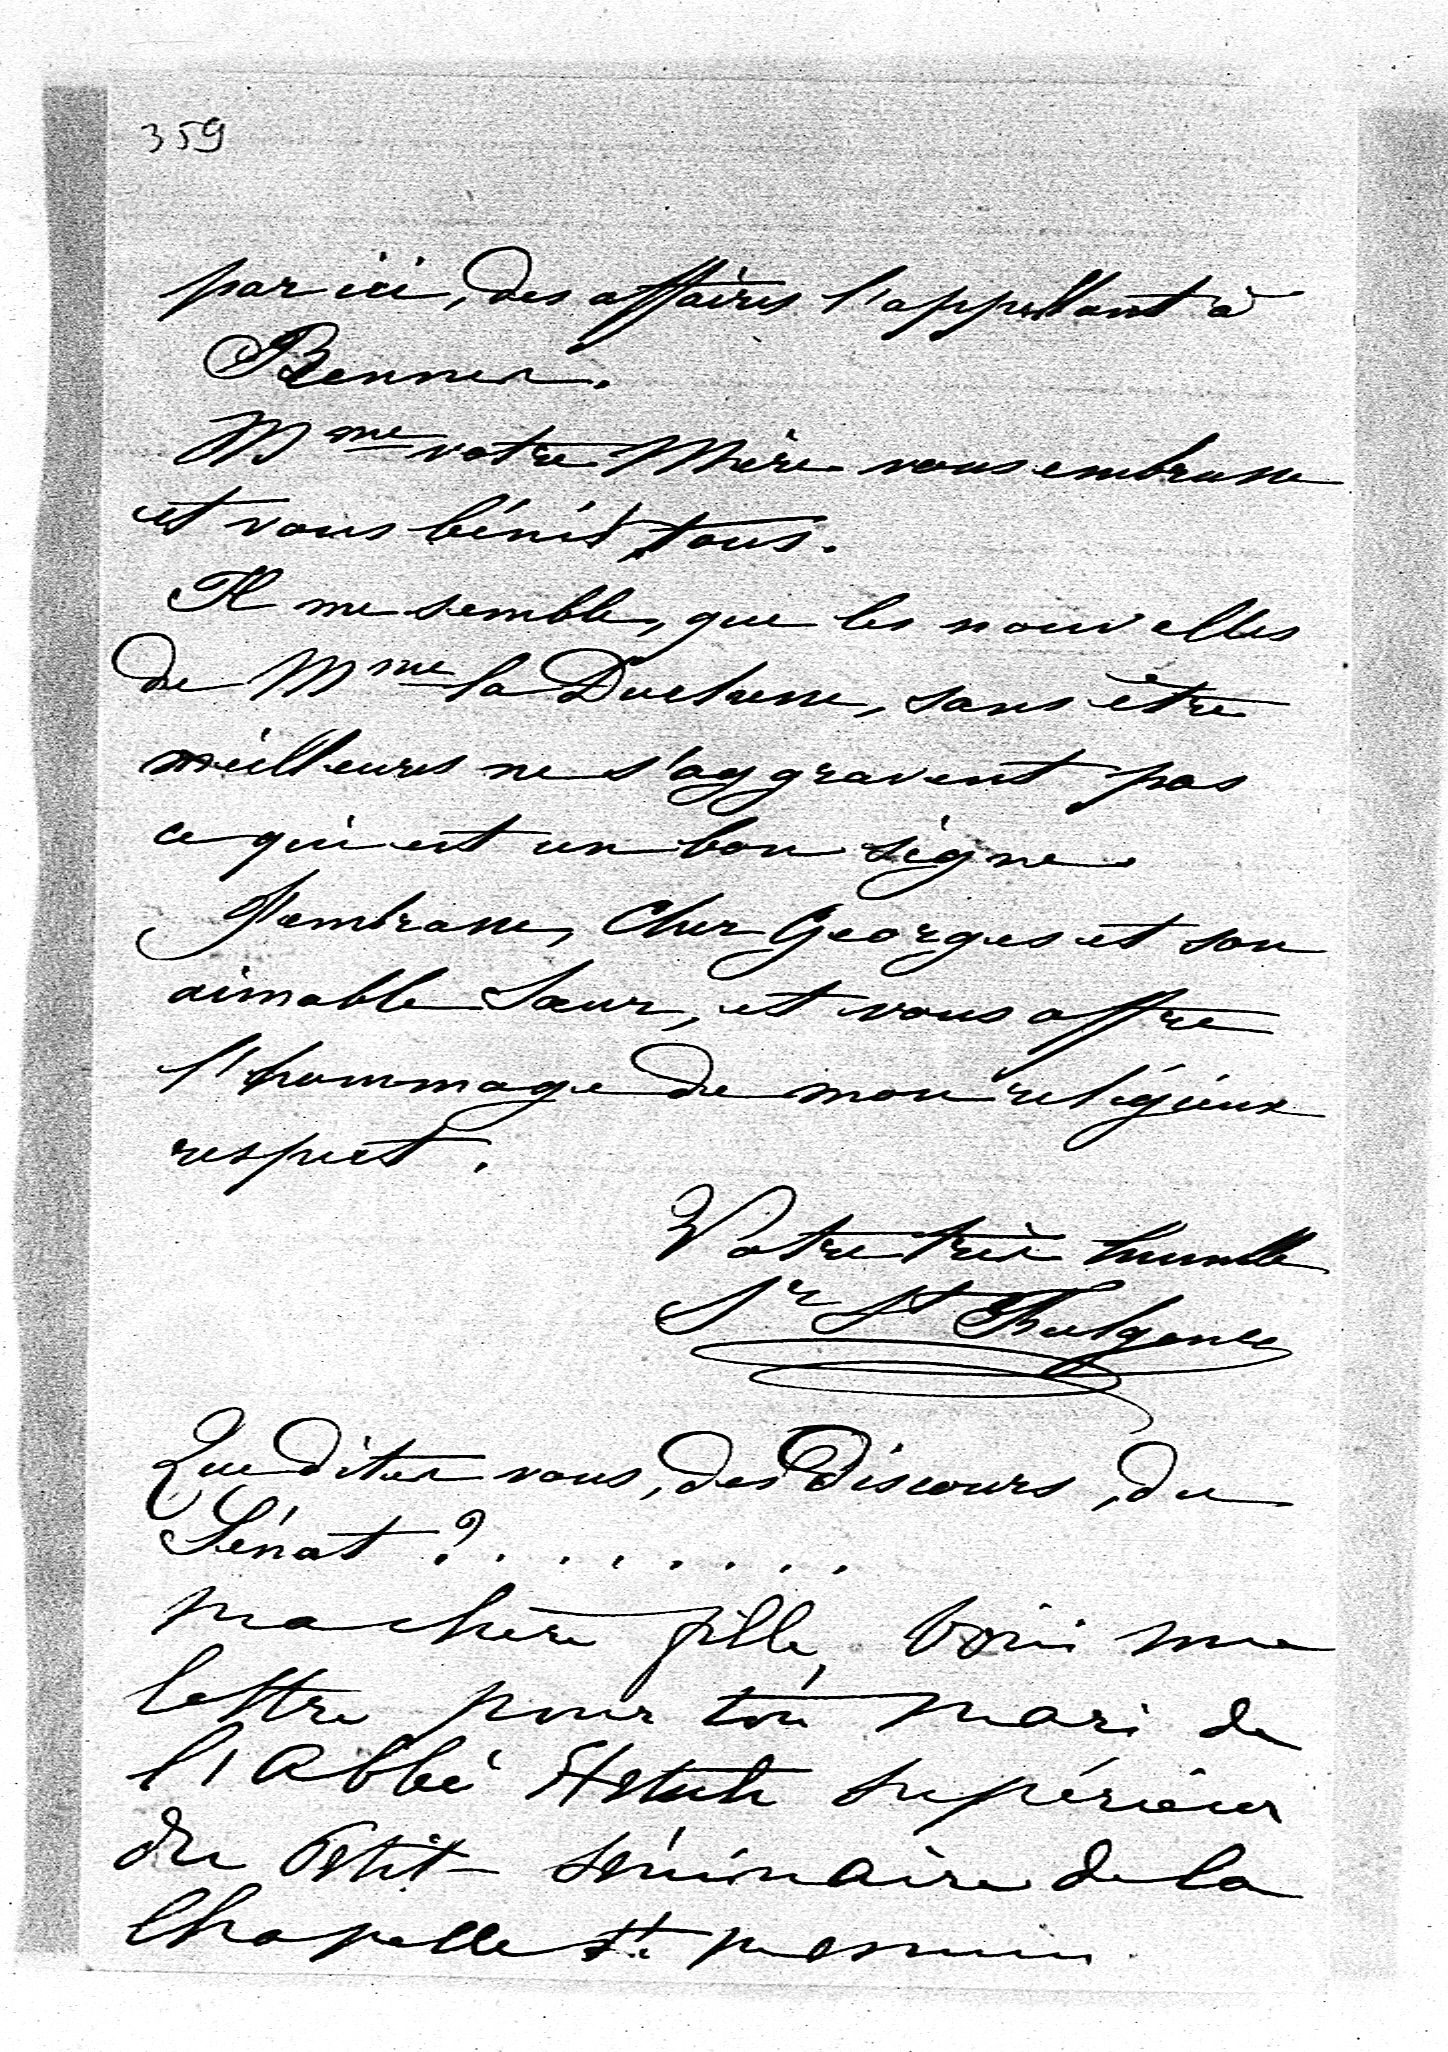 359
par ici, des affaires l'appellant à
Rennes.
Mme votre Mère vous embrasse
et vous bénit tous.
Il me semble, que les nouvelles
de Mme la Duchesse, sans être
meilleures ne s'aggravent pas
ce qui est un bon signe.
J'embrasse, Cher Georges et son
aimable Sœur, et vous offre
l'hommage de mon religieux
respect.
Votre très humble
Sr St Fulgence
Que dites vous, des Discours, du
Sénat ?........
ma chère fille, voici une
lettre pour ton mari de
l'abbé supérieur
du Petit séminaire de la
Chapelle St mesmin